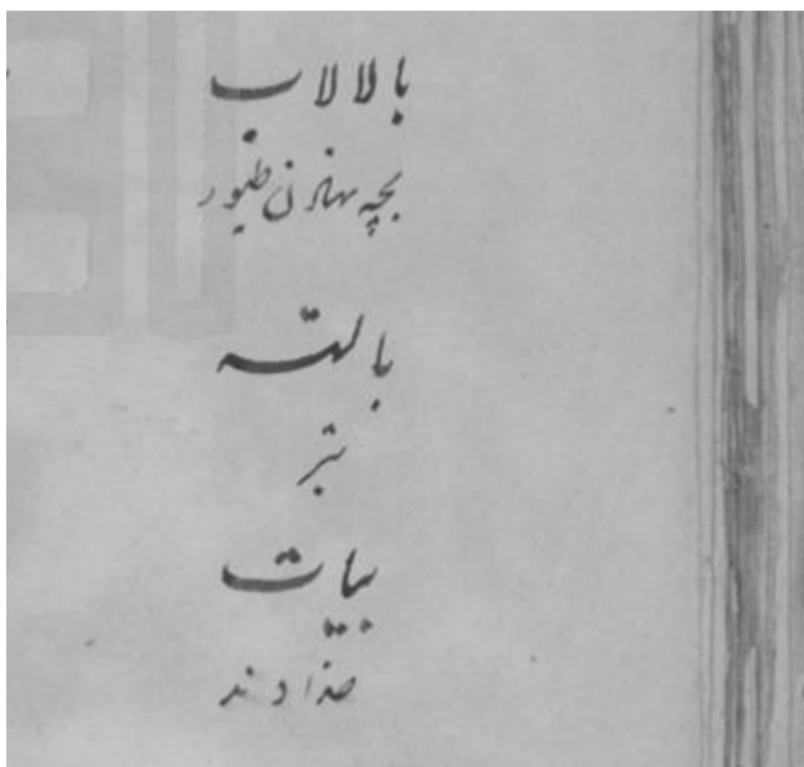 بالالاب
بچه نهادن طیور
بالته
تبر
بیات
خداوند